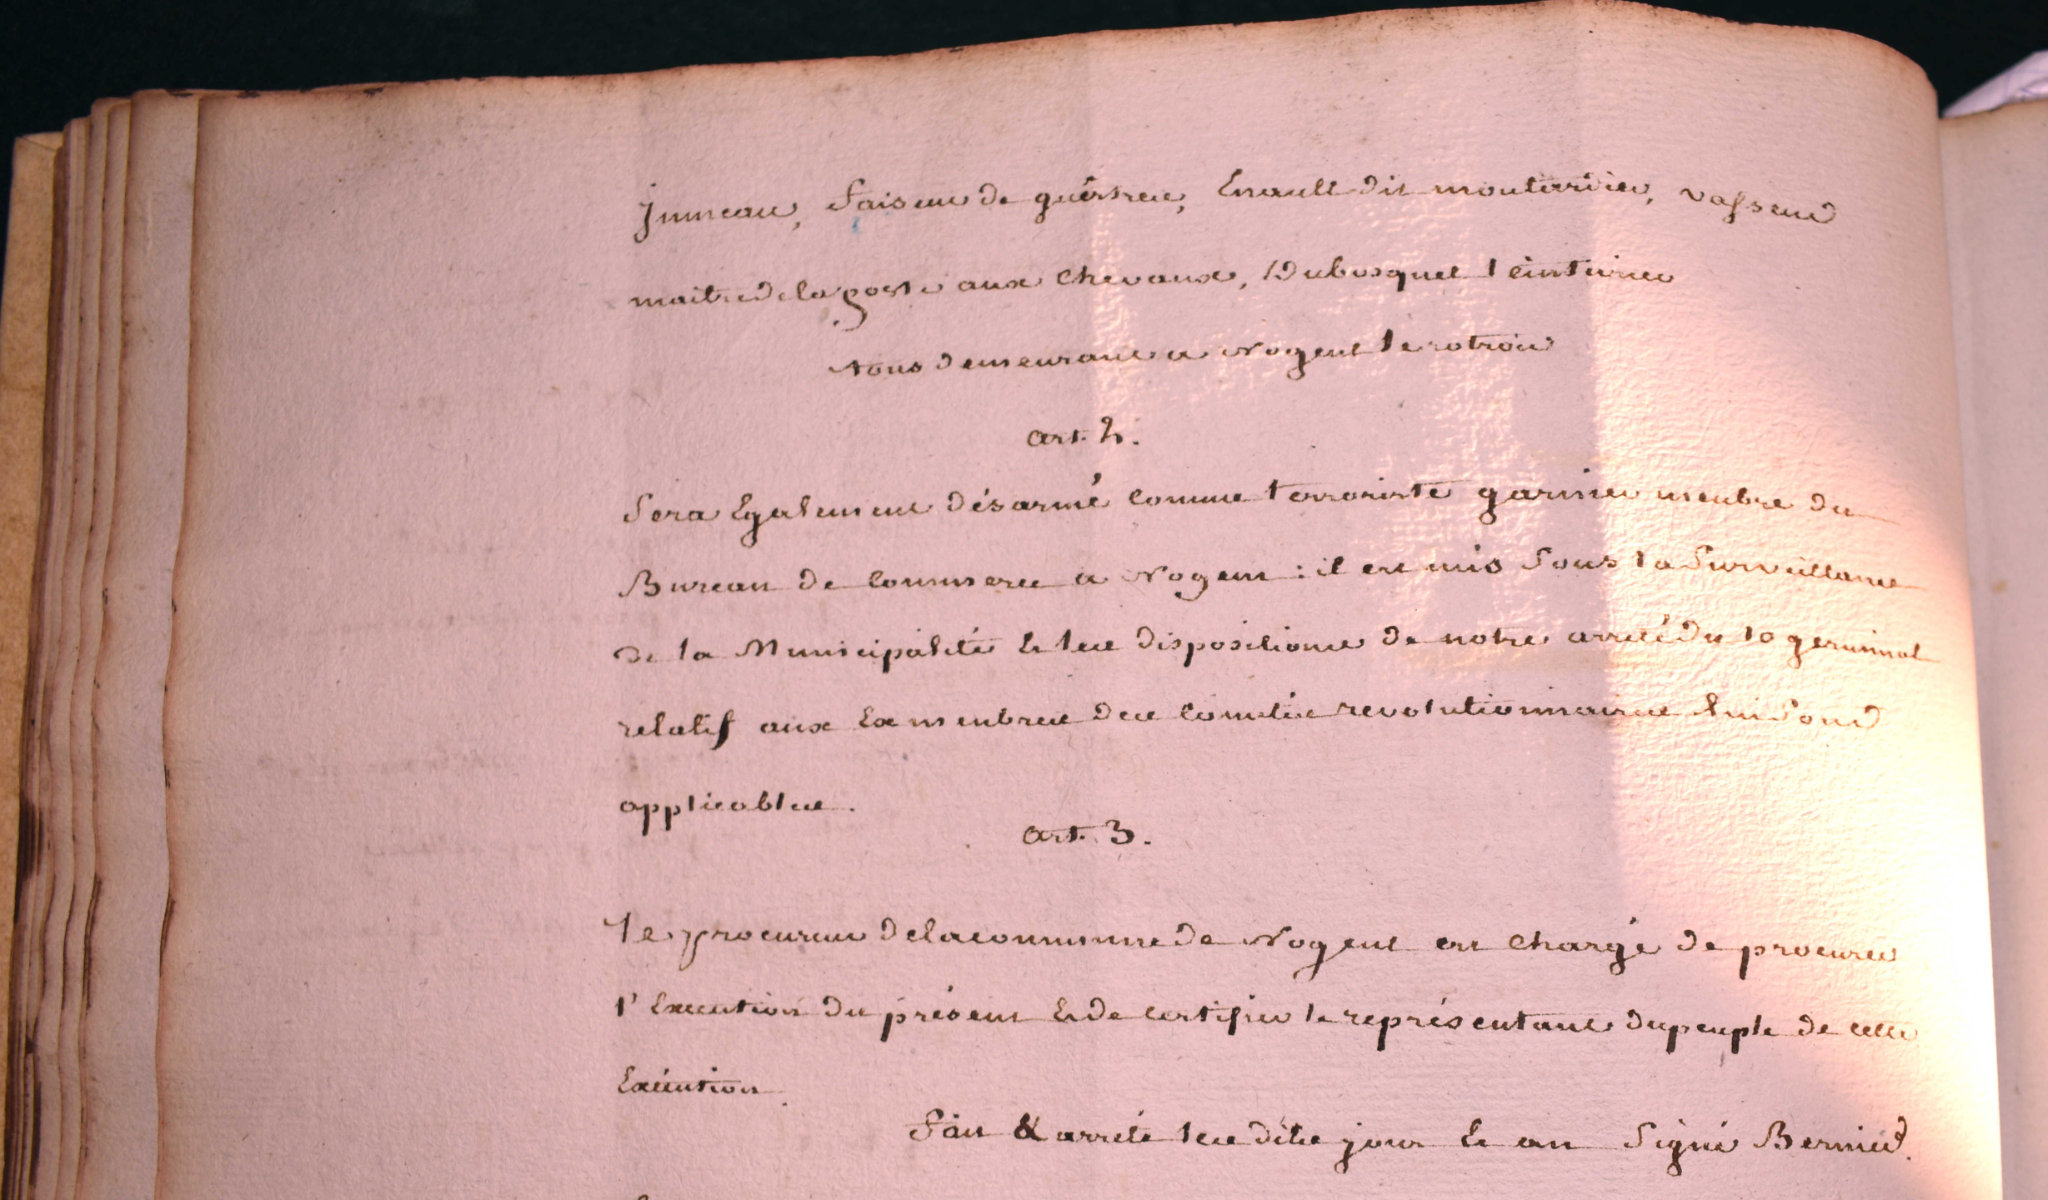 Juneau, faiseur de guêstres, Enault dit moutardier, vasseur
maitre de la poste aux chevaux, Dubosquet teinturier
tous demeurans a Nogent le rotrou
art. 2.
Sera Egalement désarmé comme terroriste garnier membre du
Bureau de commerce a Nogent : il est mis sous la surveillance
de la Municipalité & les dispositions de notre arrêté du 10 germinal
relatif aux Ex membres des comités revolutionnaires lui sont
applicables.
art. 3.
le procureur de la commune de Nogent est chargé de procurer
l'Execution du présent & de certifier le représentant du peuple de cette
Exécution.
fait & arrêté les dits jour & an signé Bernier.